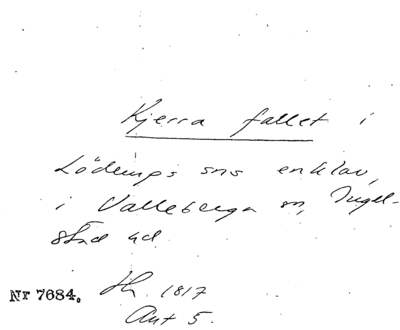 Kjerra fallet i
Löderups sns enklav,
i Valleberga sn, Ingel-
stad hd.
Nr 7684. Hh. 1817
Akt 5.